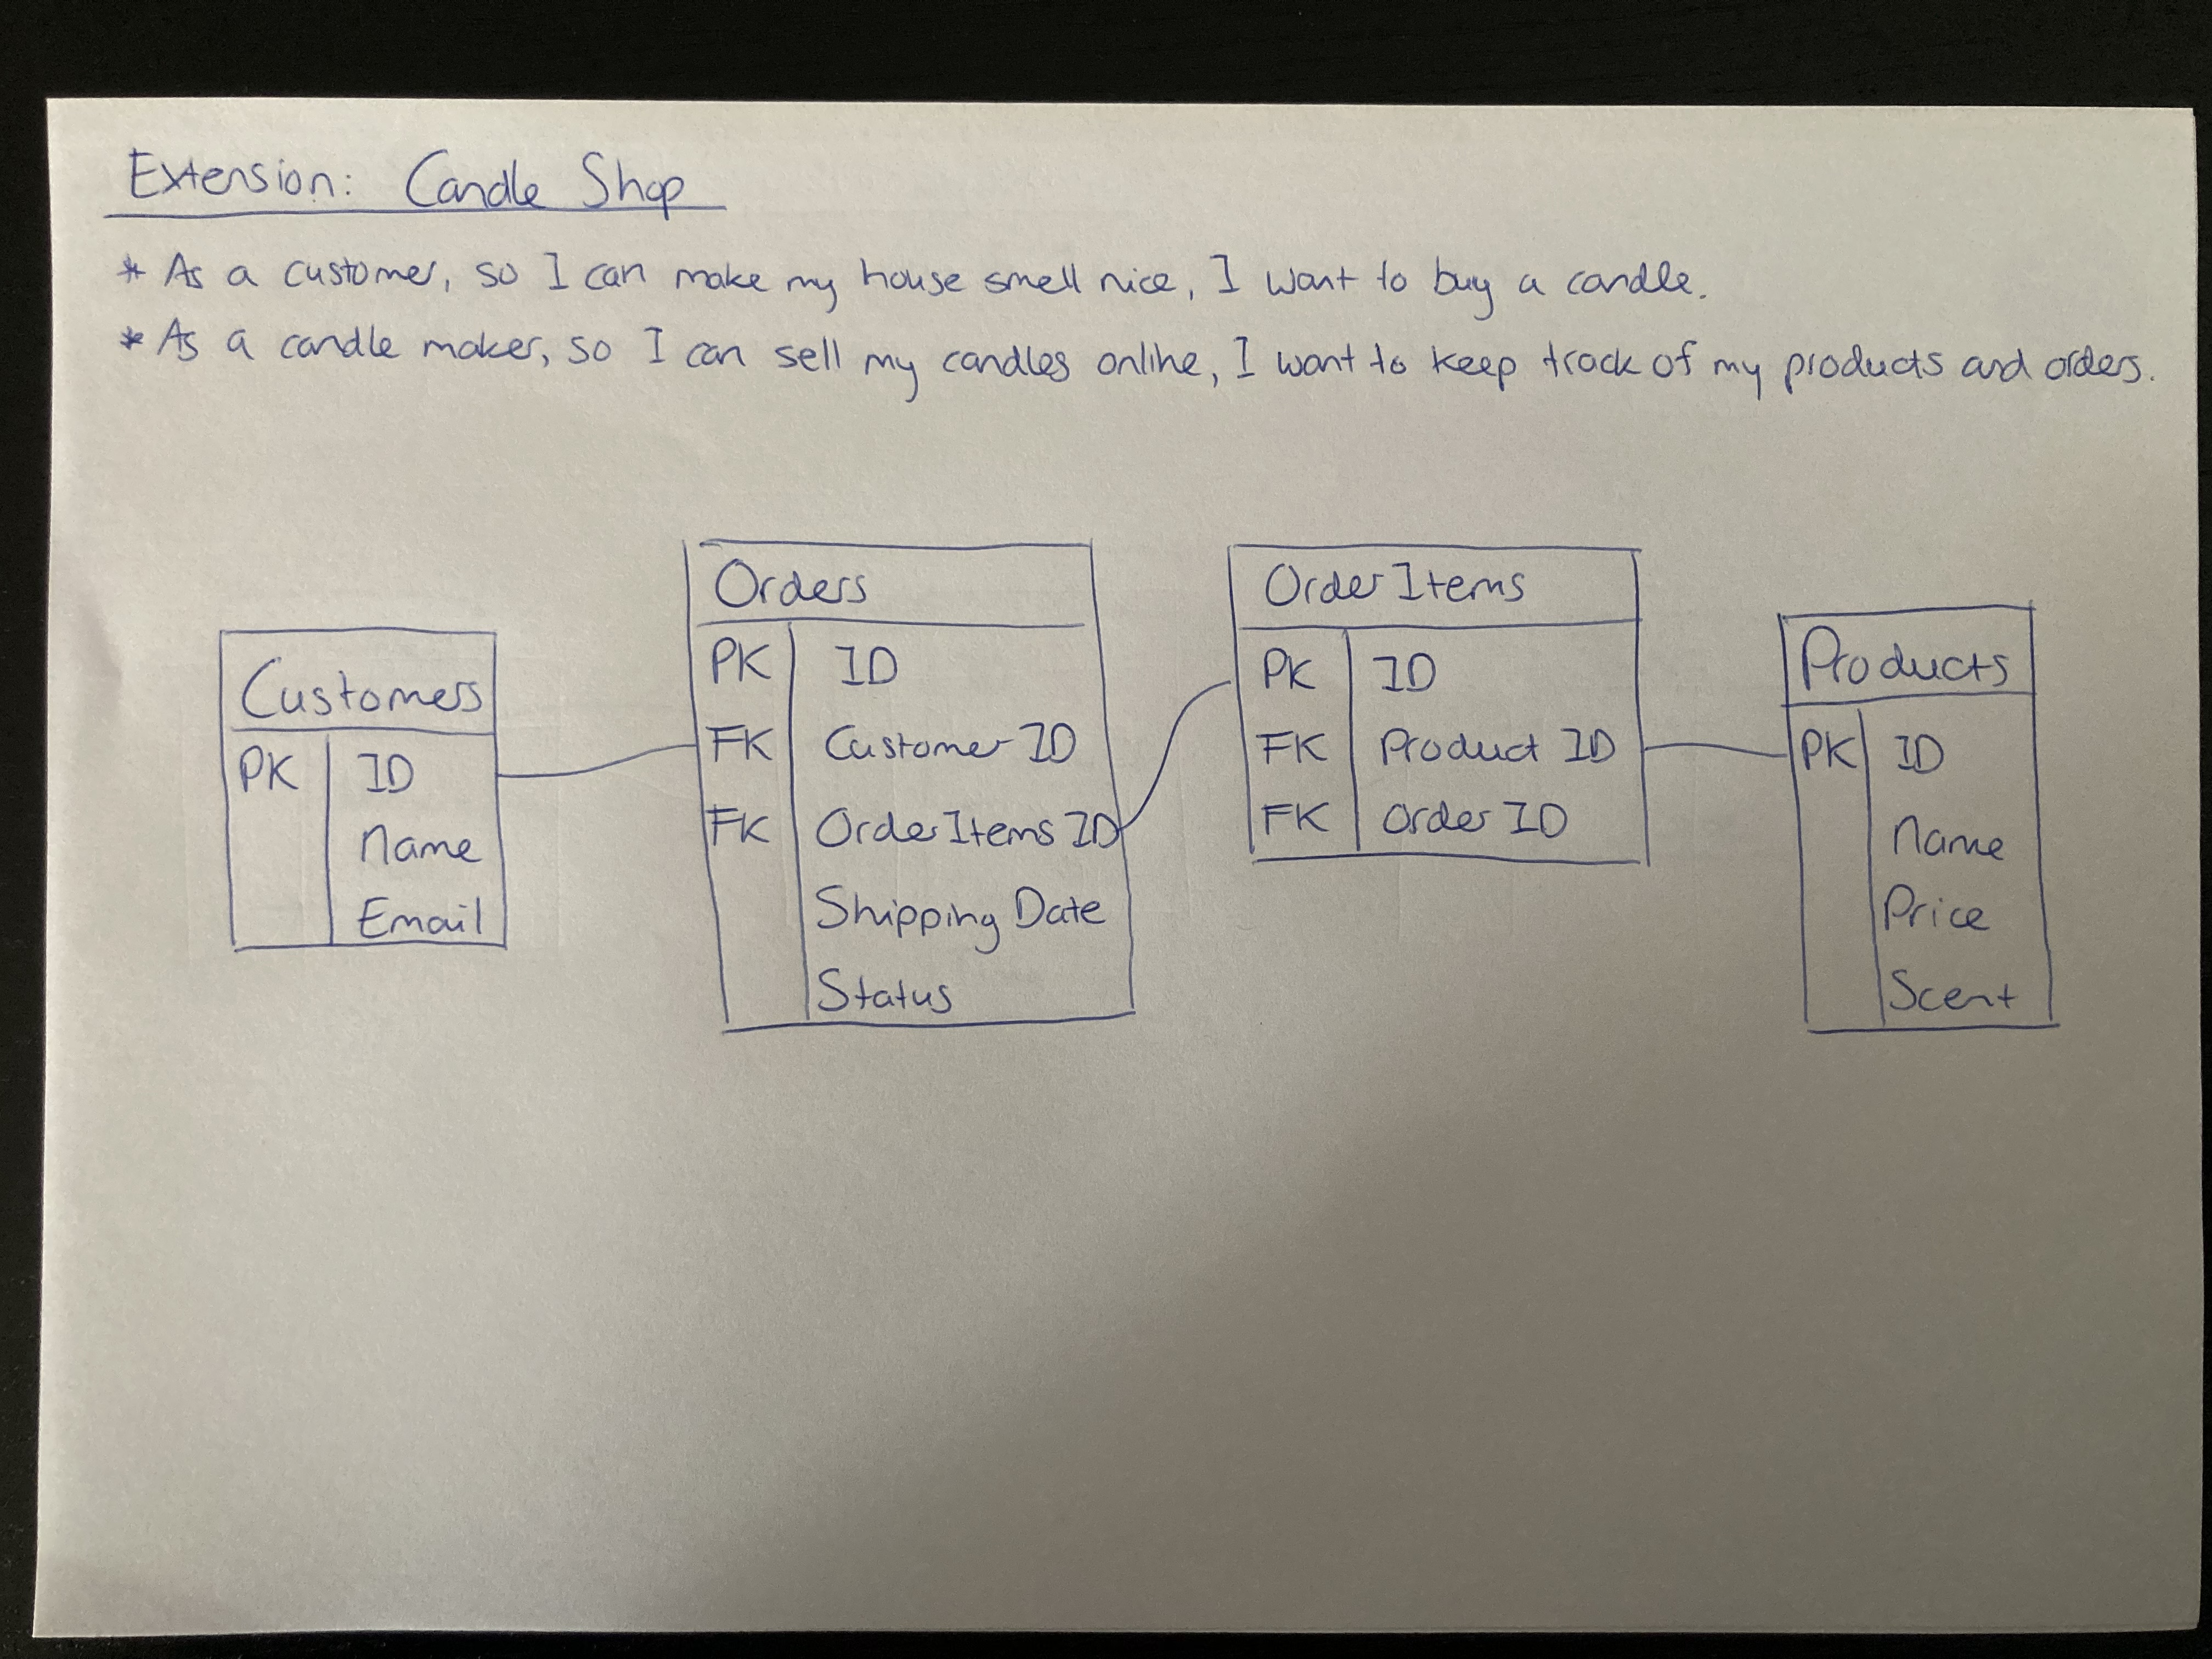 Extension: Candle Shop
* As a customer, so I can make my house smell nice, I want to buy a candle.
* As a candle maker, so I can sell my candles online, I want to keep track of my products and orders.
Customers
PK ID
Name
Email
Orders
PK ID
FK Customer ID
FK Order Items ID
Shipping Date
Status
Order Items
PK ID
FK Product ID
FK Order ID
Products
PK ID
Name
Price
Scent